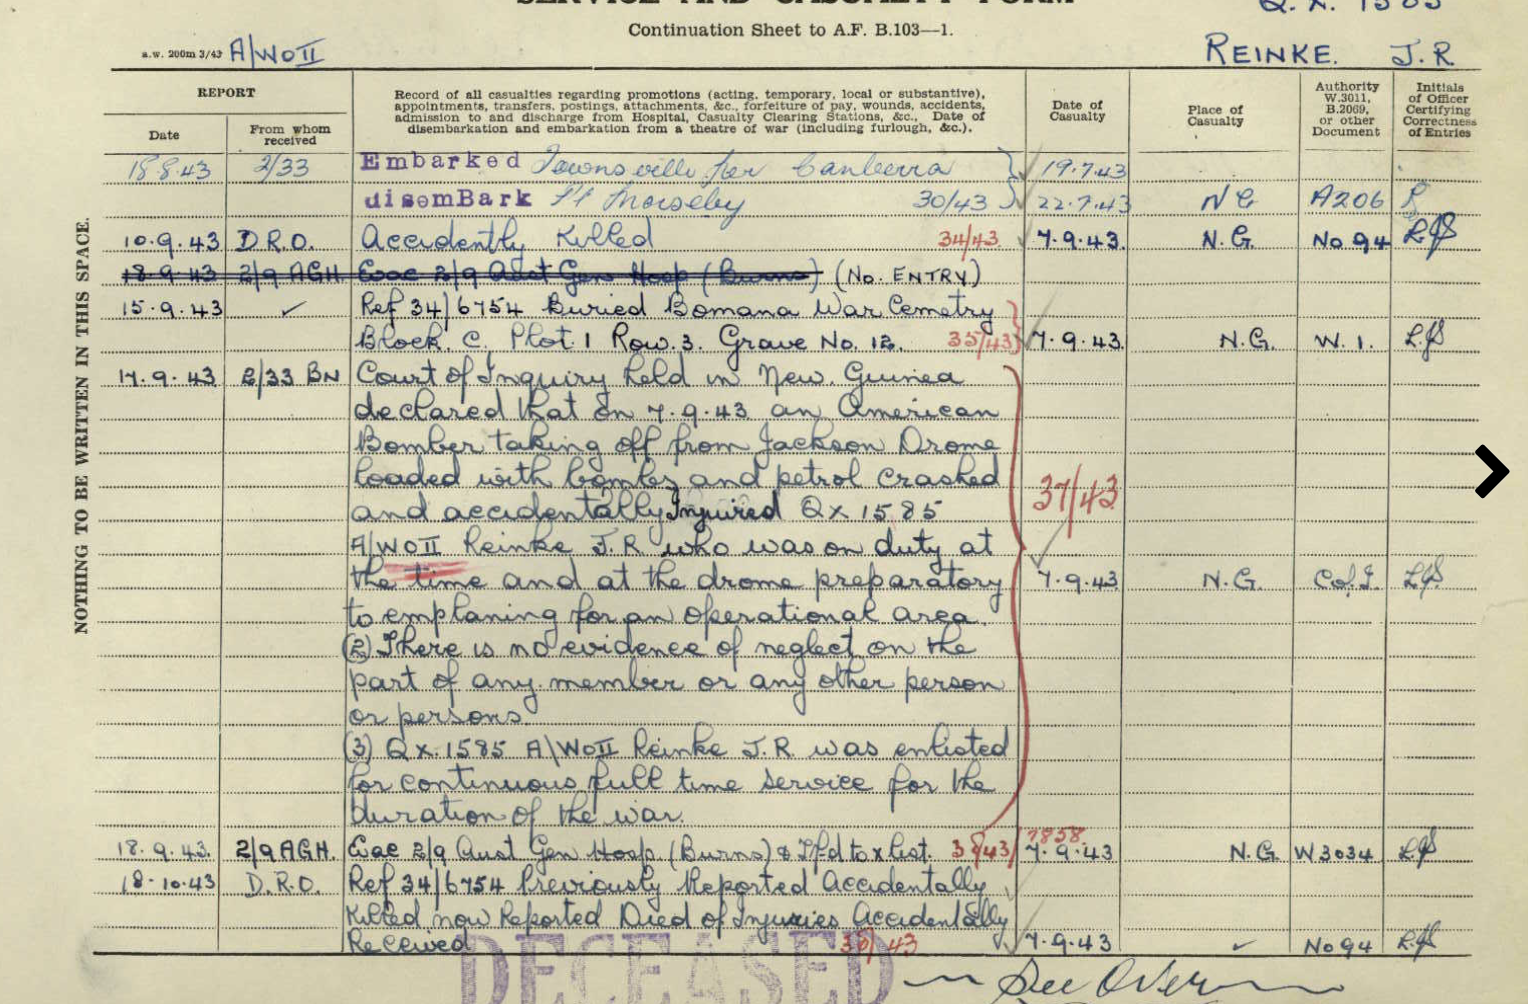 SERVICE AND CASUALTY FORM
Q.X. 1585
Continuation Sheet to A.F. B.103—1.
a.w. 200m 3/43 A/WO II
REINKE. J.R
REPORT
Date
From whom received
Record of all casualties regarding promotions (acting, temporary, local or substantive),
appointments, transfers, postings, attachments, &c., forfeiture of pay, wounds, accidents,
admission to and discharge from Hospital, Casualty Clearing Stations, &c., Date of
disembarkation and embarkation from a theatre of war (including furlough, &c.).
Date of Casualty
Place of Casualty
Authority W.3011, B.2069, or other Document
Initials of Officer Certifying Correctness of Entries
NOTHING TO BE WRITTEN IN THIS SPACE.
18 8.43 2/33 Embarked Townsville per Canberra 19.7.43
disemBark Pt Moresby 30/43 22.7.43 N G A206
10.9.43 D.R.O. Accidently Killed 34/43 7.9.43. N.G. No 94
18.9.43 2/9 AGH Evac 2/9 Aust Gen Hosp (Burns) (No. ENTRY)
15.9.43 Ref 34/6754 Buried Bomana War Cemetry
Block. C. Plot 1 Row.3. Grave No. 12. 35/43 7.9.43. N.G. W.1.
17.9.43 2/33 BN Court of Inquiry held in New. Guinea
declared that on 7.9.43 an American
Bomber taking off from Jackson Drome
loaded with bombs and petrol crashed
and accidentally Injuired Qx 1585 37/43
A/WO II Reinke J.R who was on duty at
the time and at the drome preparatory 7.9.43 N.G. Cof.I.
to emplaning for an operational area.
(2) There is no evidence of neglect on the
part of any member or any other person
or persons.
(3) Qx.1585 A/WO II Reinke J.R was enlisted
for continuous full time service for the
duration of the war.
18.9.43. 2/9 AGH. Evac 2/9 Aust Gen Hosp (Burns) & Tfd to x list. 38/43 7858 7.9.43 N.G W3034
18-10.43 D.R.O. Ref 34/6754 Previously Reported Accidentally
Killed now Reported Died of Injuries Accidentally
Received 39/43 7.9.43 No 94
DECEASED
See Over